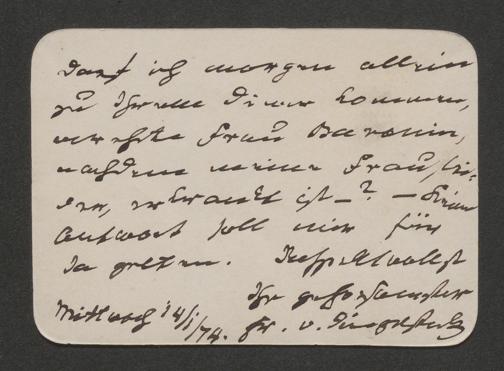 Darf ich morgen allein
zu Ihrem Diner kommen,
verehrte Frau Baronin,
nachdem meine Frau, lei-
der, erkrankt ist – ? – Keine
Antwort soll mir für
Ja gelten. Respektvollst
Ihr gehorsamster
Mittwoch 14/1/74. Fr. v.